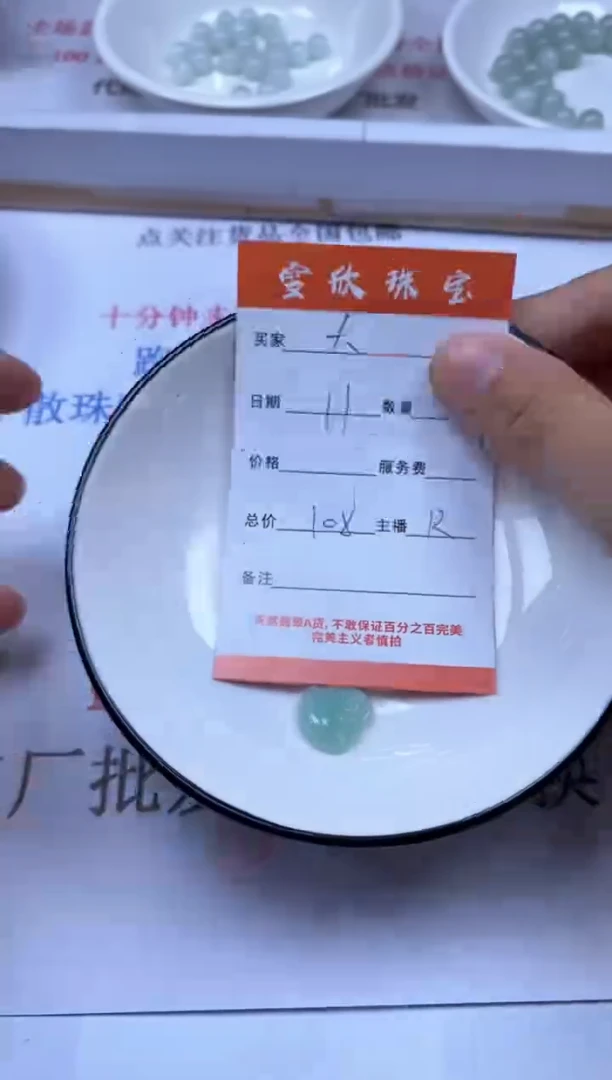 100
批发
点关注货品全国包邮
十分钟
散珠
雪欣珠宝
买家 大
日期 11 数量
价格 服务费
总价 108 主播 R
备注
天然翡翠A货,不敢保证百分之百完美
完美主义者慎拍
厂批发 换